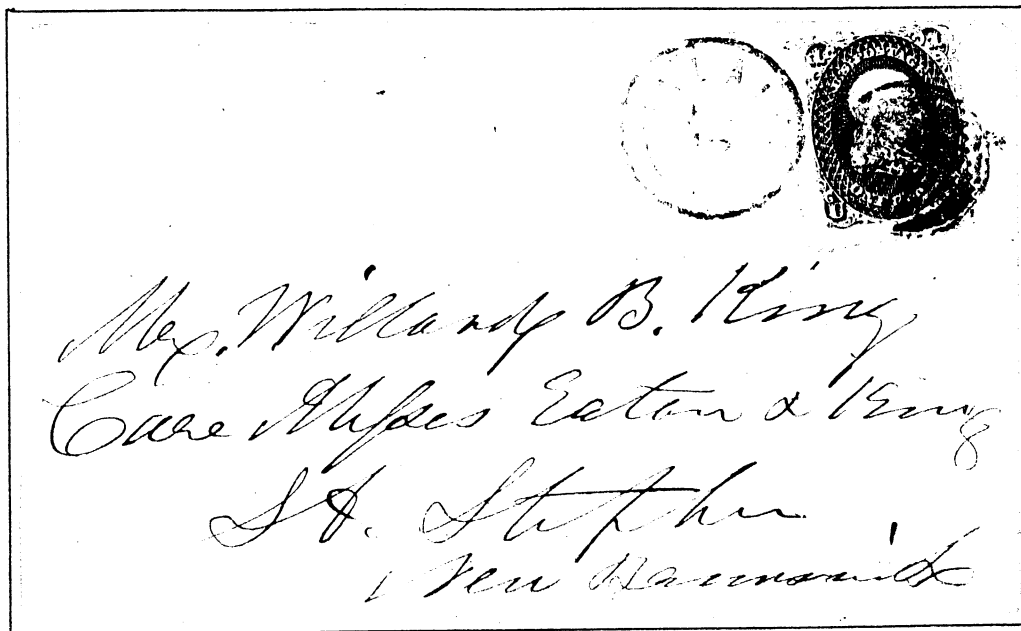 Mr. Willard B. King
Care Messes Eaton & King
St. Stephen
New Brunswick